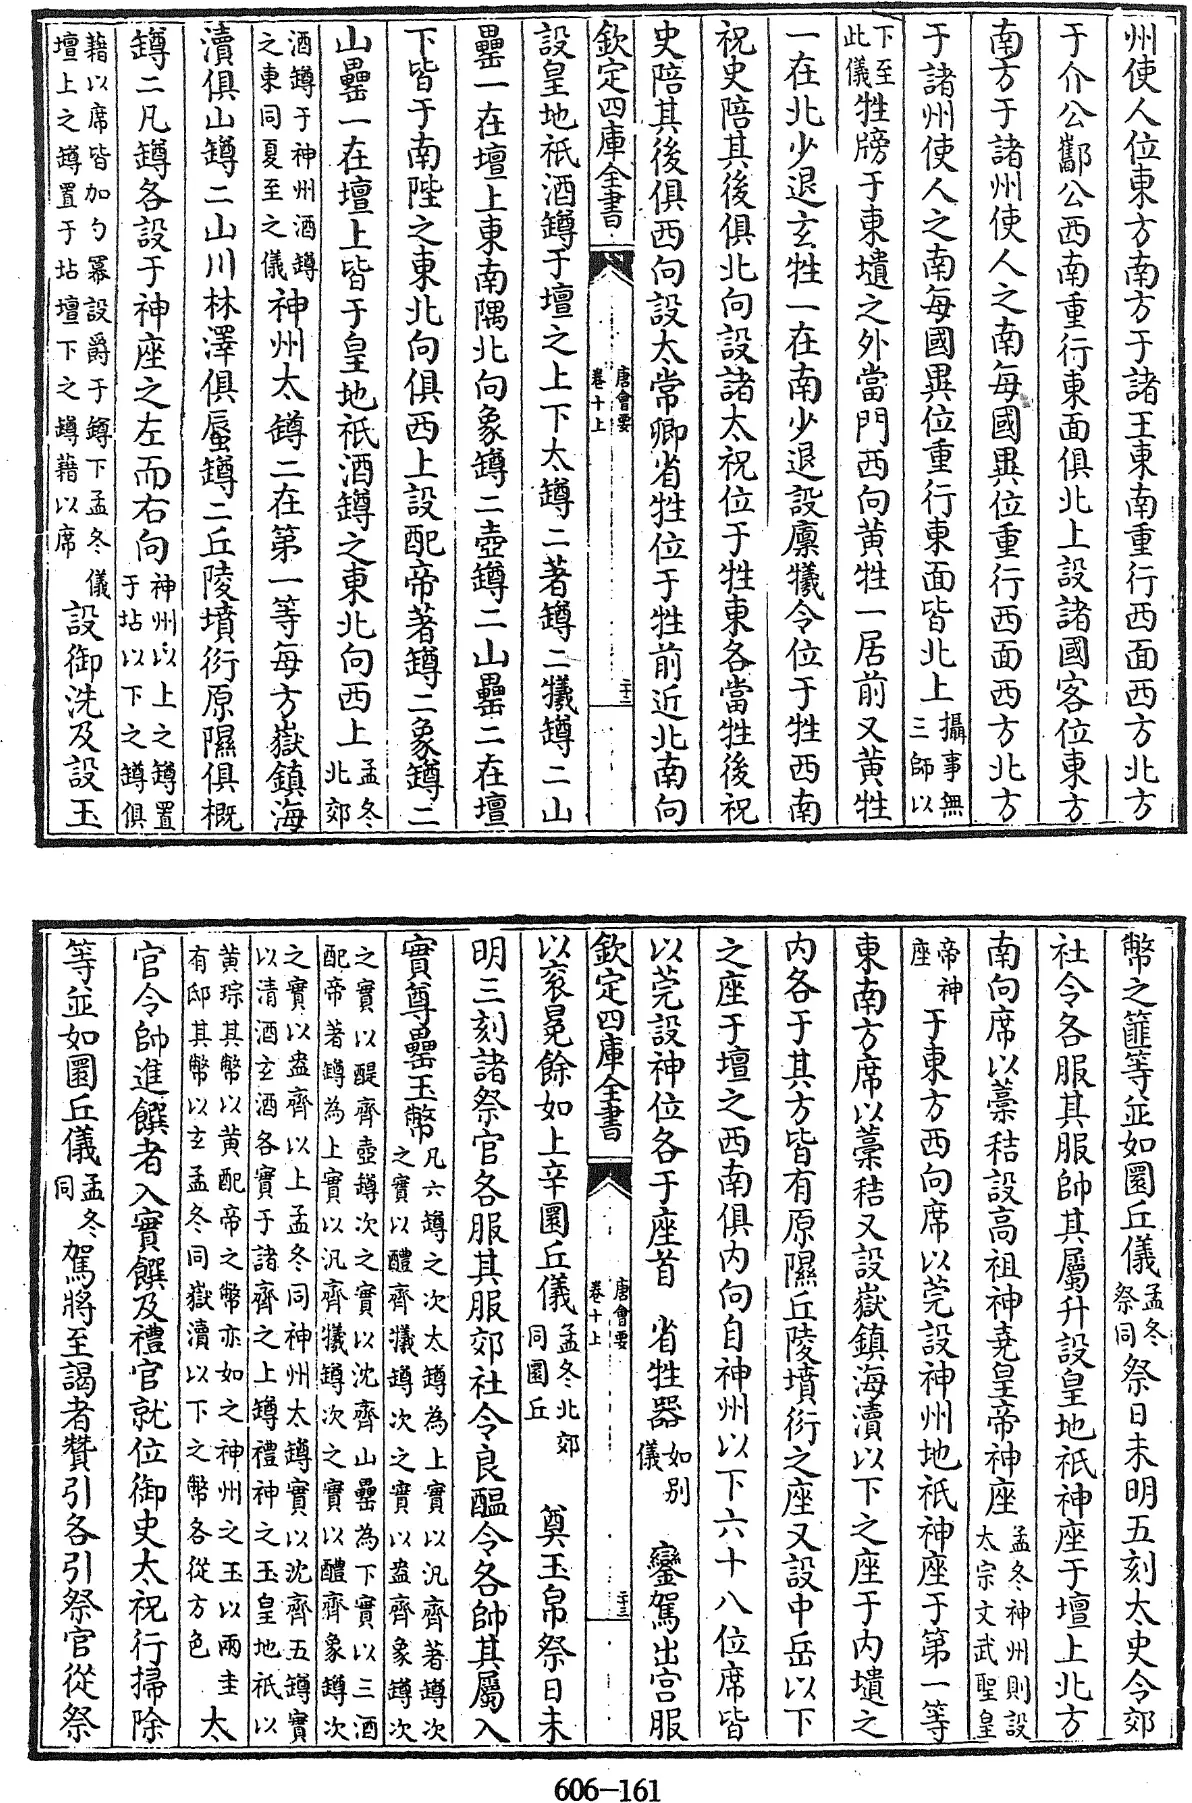 州使人位東方南方于諸王東南重行西面西方北方
于介公酅公西南重行東面俱北上設諸國客位東方
南方于諸州使人之南每國異位重行西面西方北方
于諸州使人之南每國異位重行東面皆北上攝事無三師以
下至此儀牲牓于東壝之外當門西向黄牲一居前又黄牲
一在北少退玄牲一在南少退設廪犧令位于牲西南
祝史陪其後俱北向設諸太祝位于牲東各當牲後祝
史陪其後俱西向設太常卿省牲位于牲前近北南向
欽定四庫全書 唐會要 卷十上 二十二
設皇地祇酒罇于壇之上下太罇二著罇二犧罇二山
罍一在壇上東南隅北向象罇二壺罇二山罍二在壇
下皆于南陛之東北向俱西上設配帝著罇二象罇二
山罍一在壇上皆于皇地祇酒罇之東北向西上孟冬北郊
酒罇于神州酒罇之東同夏至之儀神州太罇二在第一等每方嶽鎮海
瀆俱山罇二山川林澤俱蜃罇二丘陵墳衍原隰俱概
罇二凡罇各設于神座之左而右向神州以上之罇置于坫以下之罇俱
藉以席皆加勺冪設爵于罇下孟冬儀壇上之罇置于坫壇下之罇藉以席設御洗及設玉
幣之篚等並如圜丘儀孟冬祭同祭日未明五刻太史令郊
社令各服其服帥其屬升設皇地祇神座于壇上北方
南向席以藁秸設高祖神堯皇帝神座孟冬神州則設太宗文武聖皇
帝神座于東方西向席以莞設神州地祇神座于第一等
東南方席以藁秸又設嶽鎮海瀆以下之座于内壝之
内各于其方皆有原隰丘陵墳衍之座又設中岳以下
之座于壇之西南俱内向自神州以下六十八位席皆
以莞設神位各于座首 省牲器如别儀 鑾駕出宫服
欽定四庫全書 唐會要 卷十上 二十三
以衮冕餘如上辛圜丘儀孟冬北郊同圜丘 奠玉帛祭日未
明三刻諸祭官各服其服郊社令良醖令各帥其屬入
實尊罍玉幣凡六罇之次太罇為上實以汎齊著罇次之實以醴齊犧罇次之實以盎齊象罇次
之實以醍齊壺罇次之實以沈齊山罍為下實以三酒配帝著罇為上實以汎齊犧罇次之實以醴齊象罇次
之實以盎齊以上孟冬同神州太罇實以沈齊五罇實以清酒玄酒各實于諸齊之上罇禮神之玉皇地祇以
黄琮其幣以黄配帝之幣亦如之神州之玉以兩圭有邸其幣以玄孟冬同嶽瀆以下之幣各從方色 太
官令帥進饌者入實饌及禮官就位御史太祝行掃除
等並如圜丘儀孟冬同駕將至謁者贊引各引祭官從祭
606-161